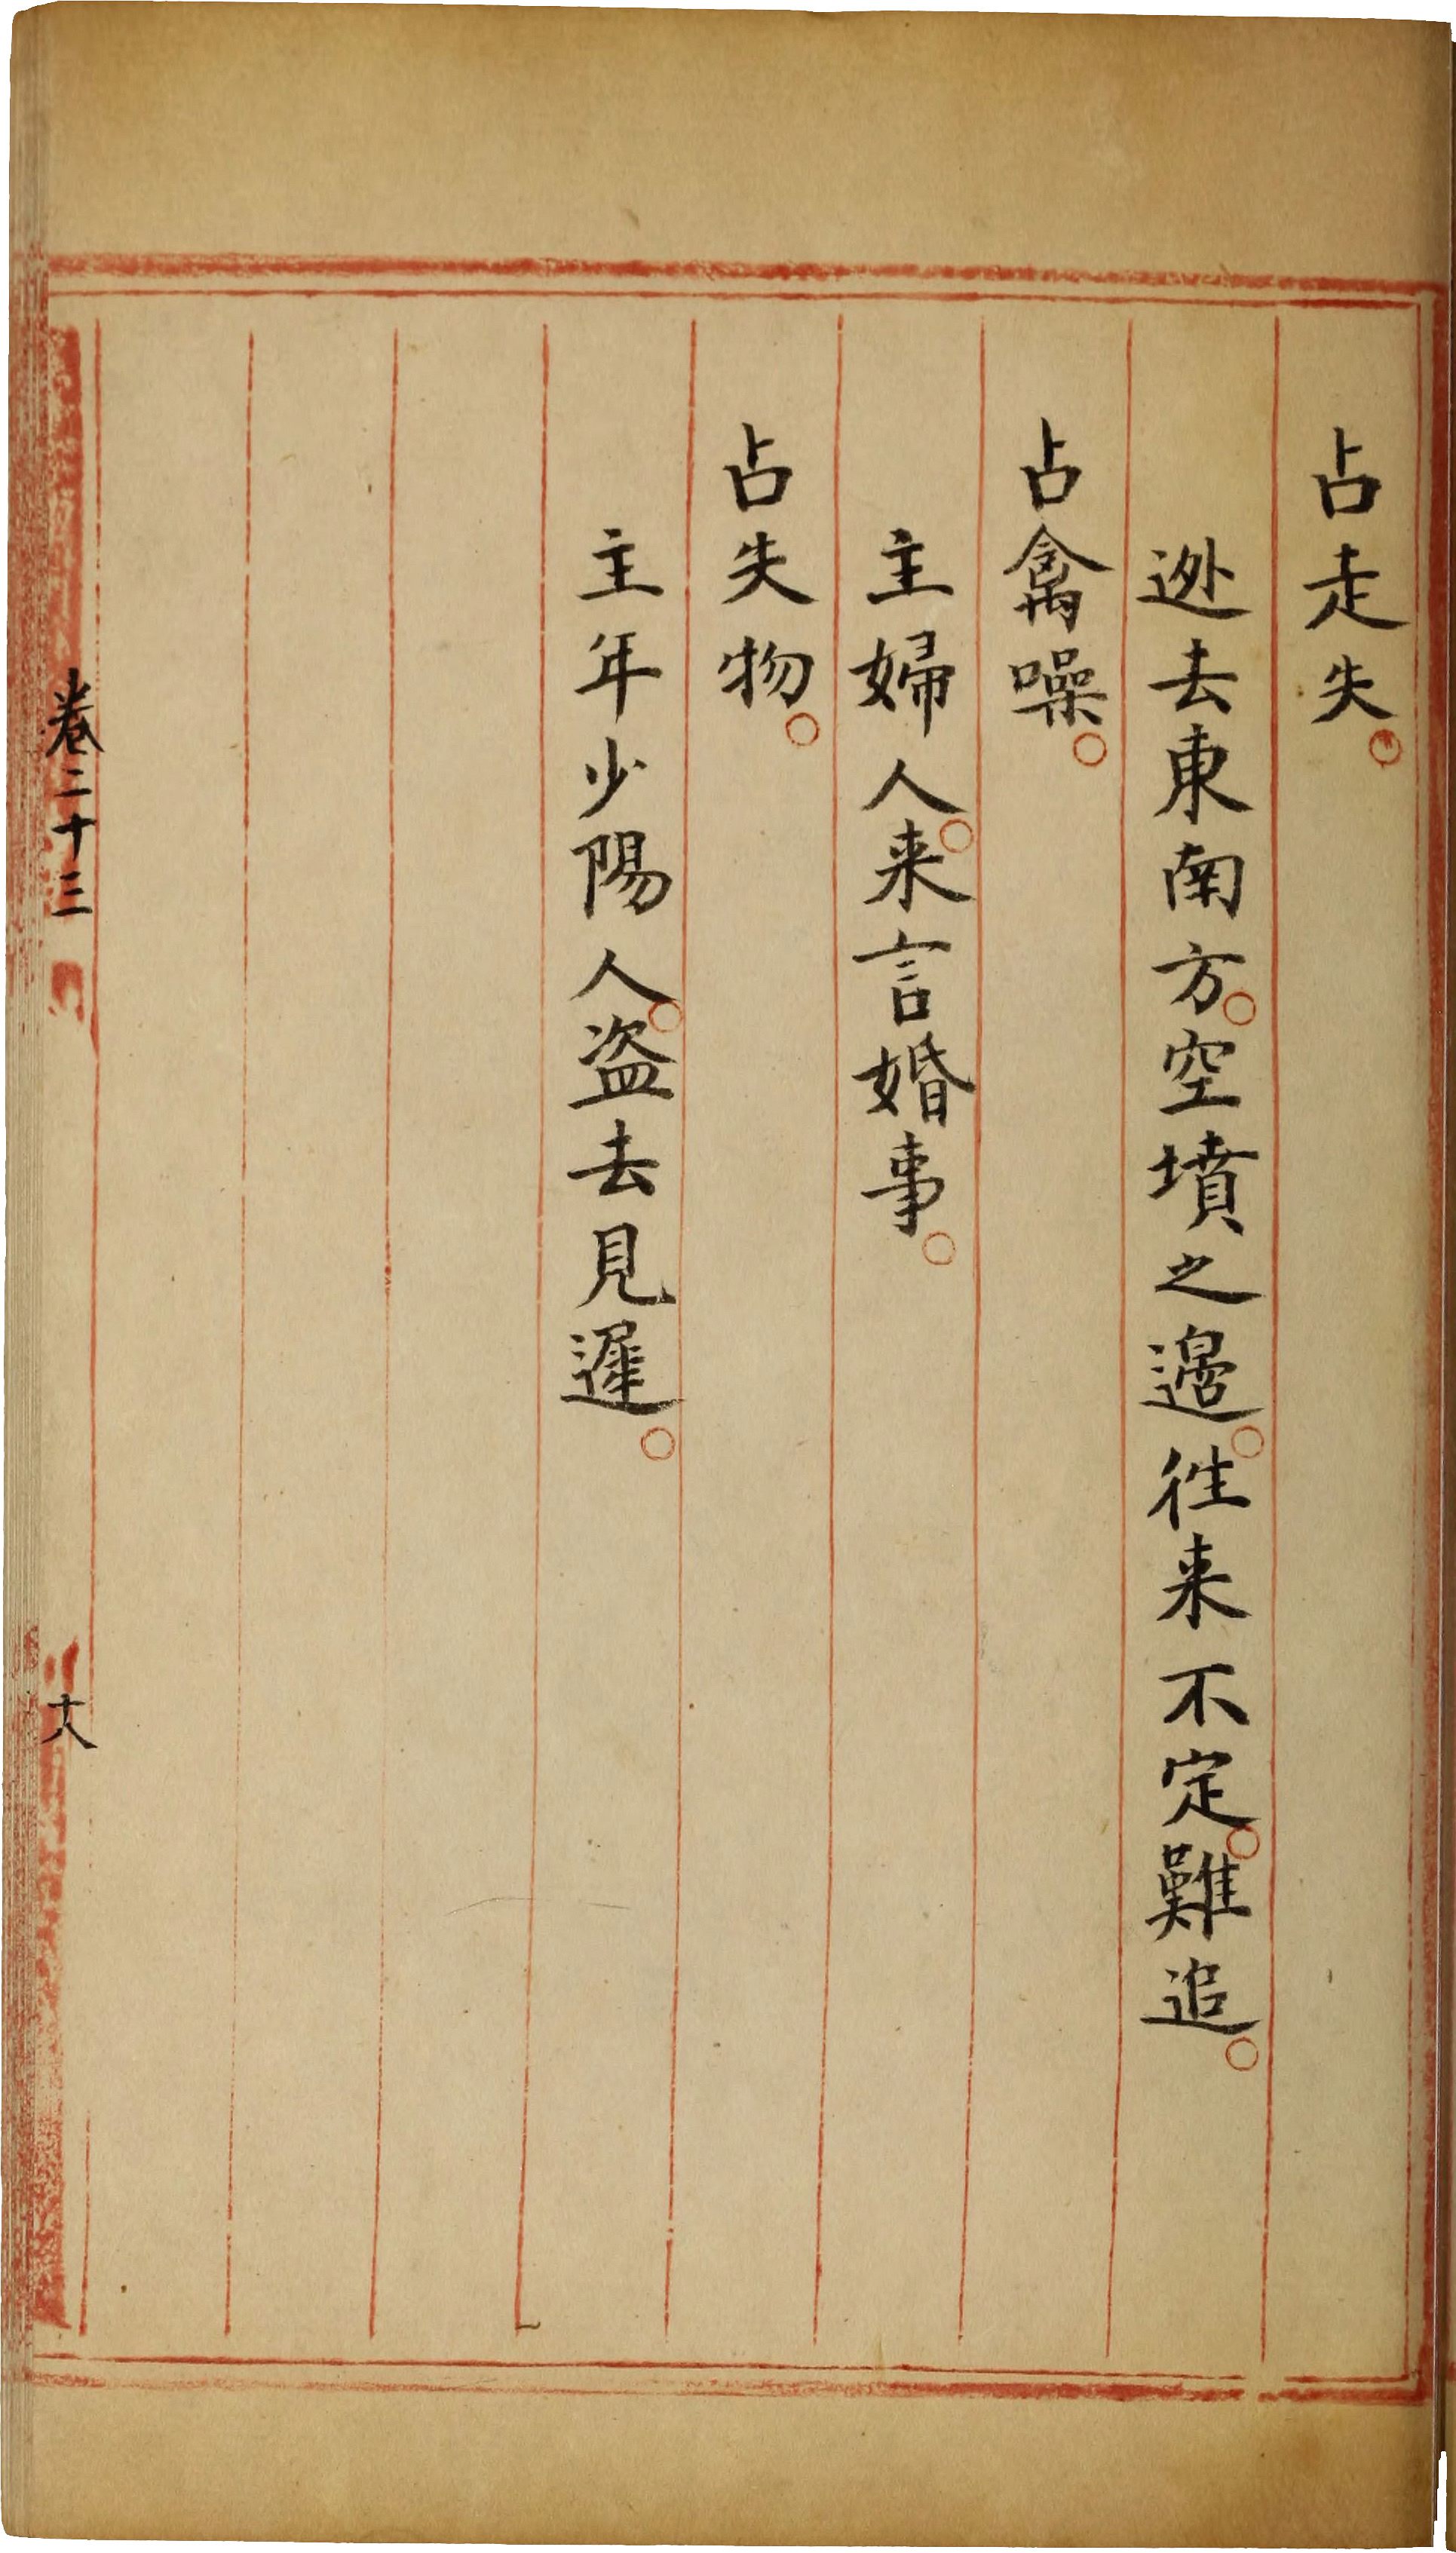 占走失。
逊去東南方。空墳之邉。徃来不定。難追。
占禽噪。
主婦人。来言婚事。
占失物。
主年少陽人。盗去見遲。
卷二十三
十八